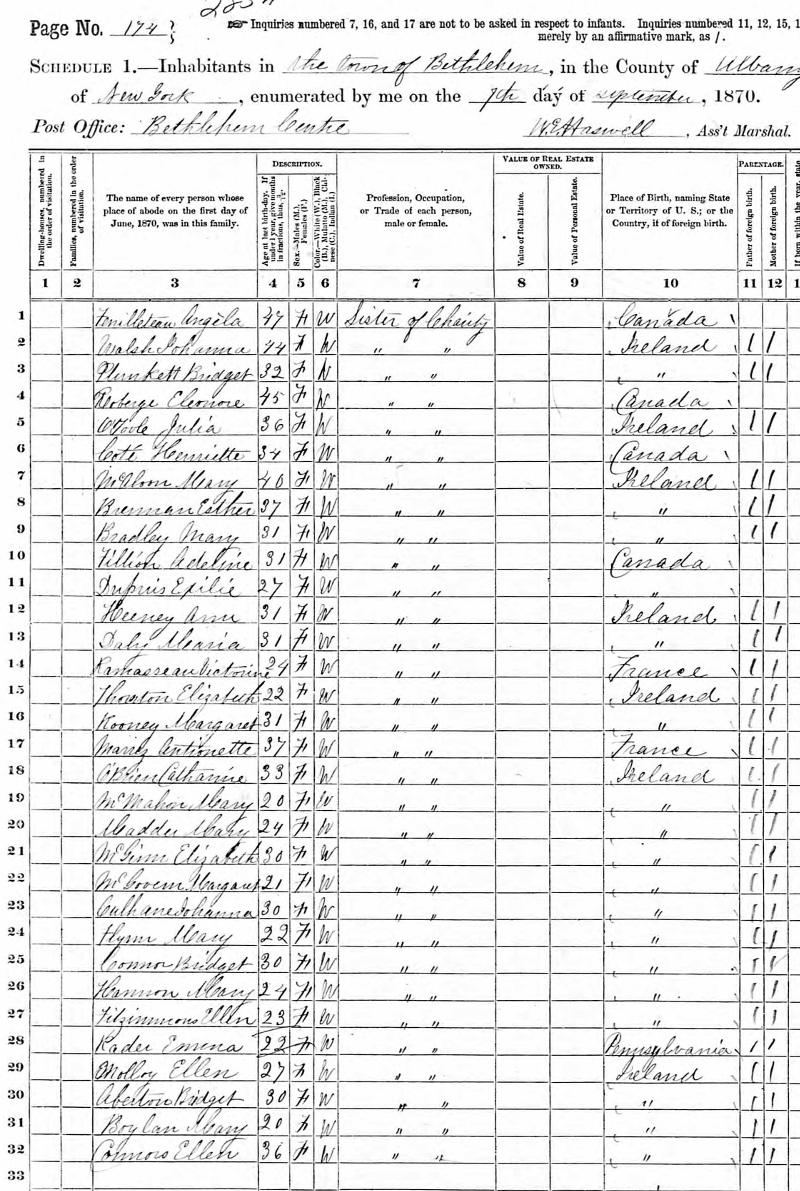 Page No. 174
Inquiries numbered 7, 16, and 17 are not to be asked in respect to infants. Inquiries numbered 11, 12, 15, 1
merely by an affirmative mark, as /.
SCHEDULE 1.—Inhabitants in the town of Bethlehem, in the County of Albany
of New York, enumerated by me on the 7th day of September, 1870.
Post Office: Bethlehem Centre W.E. Haswell, Ass't Marshal.
Dwelling-houses, numbered in the order of visitation.
Families, numbered in the order of visitation.
The name of every person whose place of abode on the first day of June, 1870, was in this family.
DESCRIPTION.
Age at last birth-day. If under 1 year, give months in fractions, thus, 3/12.
Sex.—Males (M.), Females (F.)
Color.—White (W.), Black (B.), Mulatto (M.), Chinese (C.), Indian (I.)
Profession, Occupation, or Trade of each person, male or female.
VALUE OF REAL ESTATE OWNED.
Value of Real Estate.
Value of Personal Estate.
Place of Birth, naming State or Territory of U. S.; or the Country, if of foreign birth.
PARENTAGE.
Father of foreign birth.
Mother of foreign birth.
If born within the year, state
1 2 3 4 5 6 7 8 9 10 11 12 1
1 Angela 47 F W Sister of Charity Canada
2 Walsh Johanna 44 F W " " Ireland / /
3 Plunkett Bridget 32 F W " " " / /
4 Roberge Eleonore 45 F W " " Canada
5 O'Toole Julia 36 F W " " Ireland / /
6 Coté Henriette 34 F W " " Canada
7 McAloon Mary 40 F W " " Ireland / /
8 Brennan Esther 37 F W " " " / /
9 Bradley Mary 31 F W " " " / /
10 Adeline 31 F W " " Canada
11 Dupuis Exilie 27 F W " " "
12 Heeney Ann 31 F W " " Ireland / /
13 Daly Maria 31 F W " " " / /
14 Victorine 24 F W " " France / /
15 Thornton Elizabeth 22 F W " " Ireland / /
16 Rooney Margaret 31 F W " " " / /
17 Antionette 37 F W " " France / /
18 O'Brien Catharine 33 F W " " Ireland / /
19 McMahon Mary 20 F W " " " / /
20 Madder Mary 24 F W " " " / /
21 McGinn Elizabeth 30 F W " " " / /
22 McGovern Margaret 21 F W " " " / /
23 Culhane Johanna 30 F W " " " / /
24 Flynn Mary 22 F W " " " / /
25 Connor Bridget 30 F W " " " / /
26 Hannon Mary 24 F W " " " / /
27 Fitzimmons Ellen 23 F W " " " / /
28 Rader Emma 22 F W " " Pennsylvania / /
29 Molloy Ellen 27 F W " " Ireland / /
30 Aberton Bridget 30 F W " " " / /
31 Boylan Mary 20 F W " " " / /
32 Connors Ellen 36 F W " " " / /
33